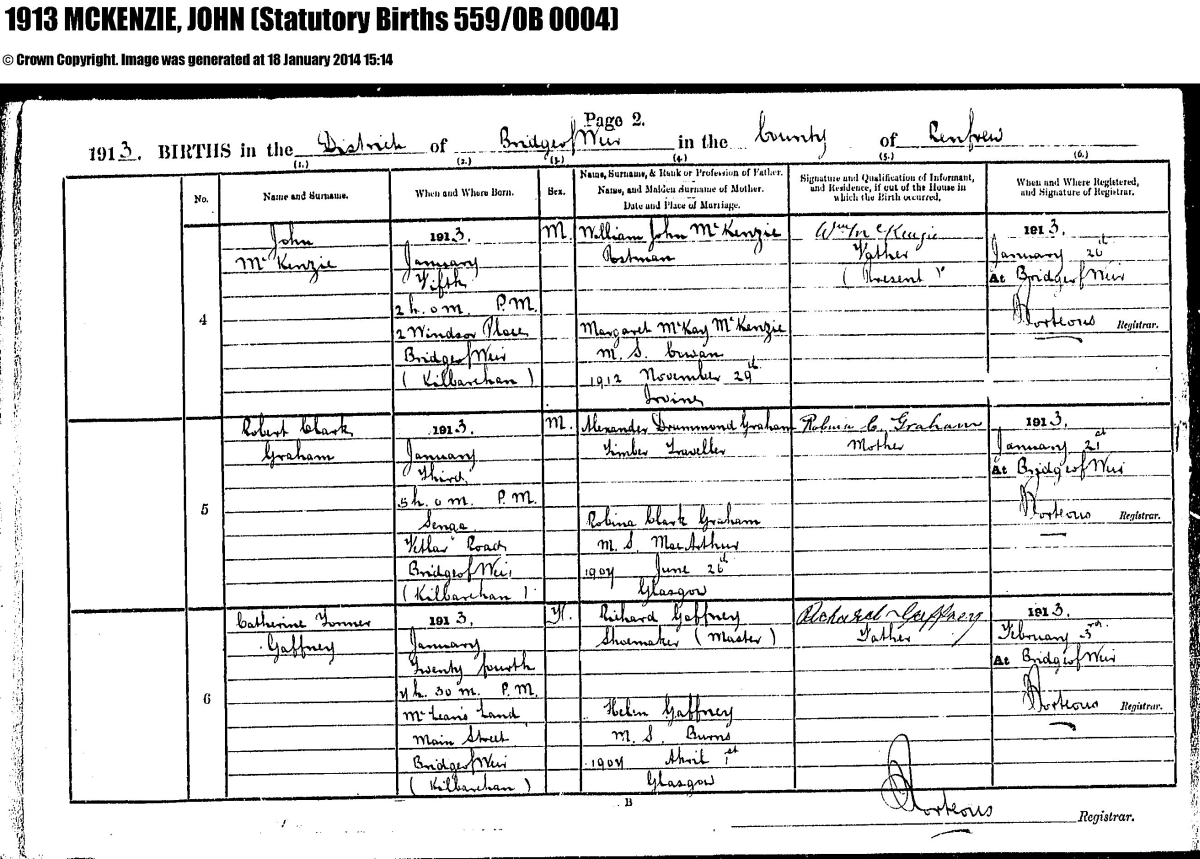 1913 MCKENZIE, JOHN (Statutory Births 559/0B 0004)
© Crown Copyright. Image was generated at 18 January 2014 15:14
Page 2.
1913. BIRTHS in the District of Bridge of Weir in the County of Renfrew
(1.) (2.) (3.) (4.) (5.) (6.)
No.
Name and Surname.
When and Where Born.
Sex.
Name, Surname, & Rank or Profession of Father.
Name, and Maiden Surname of Mother.
Date and Place of Marriage.
Signature and Qualification of Informant,
and Residence, if out of the House in
which the Birth occurred,
When and Where Registered,
and Signature of Registrar.
4
John
McKenzie
1913.
January
Fifth
2 h. 0 m. P.M.
2 Windsor Place
Bridge of Weir
(Kilbarchan)
M.
William John McKenzie
Postman
Margaret McKay McKenzie
M. S. Cowan
1912 November 29th
Irvine
Wm McKenzie
Father
(Present)
1913.
January 20th
At Bridge of Weir
Porteous Registrar.
5
Robert Clark
Graham
1913.
January
Third
5 h. 0 m. P.M.
Senga
Road
Bridge of Weir
(Kilbarchan)
M.
Alexander Drummond Graham
Timber Traveller
Robina Clark Graham
M. S. MacArthur
1907 June 26th
Glasgow
Robina C. Graham
Mother
1913.
January 21st
At Bridge of Weir
Porteous Registrar.
6
Catherine Tonner
Gaffney
1913.
January
Twenty fourth
7 h. 30 m. P.M.
McLean's Land
Main Street
Bridge of Weir
(Kilbarchan)
F.
Richard Gaffney
Shoemaker (Master)
Helen Gaffney
M. S. Burns
1907 April 1st
Glasgow
Richard Gaffney
Father
1913.
February 3rd
At Bridge of Weir
Porteous Registrar.
B
Porteous Registrar.